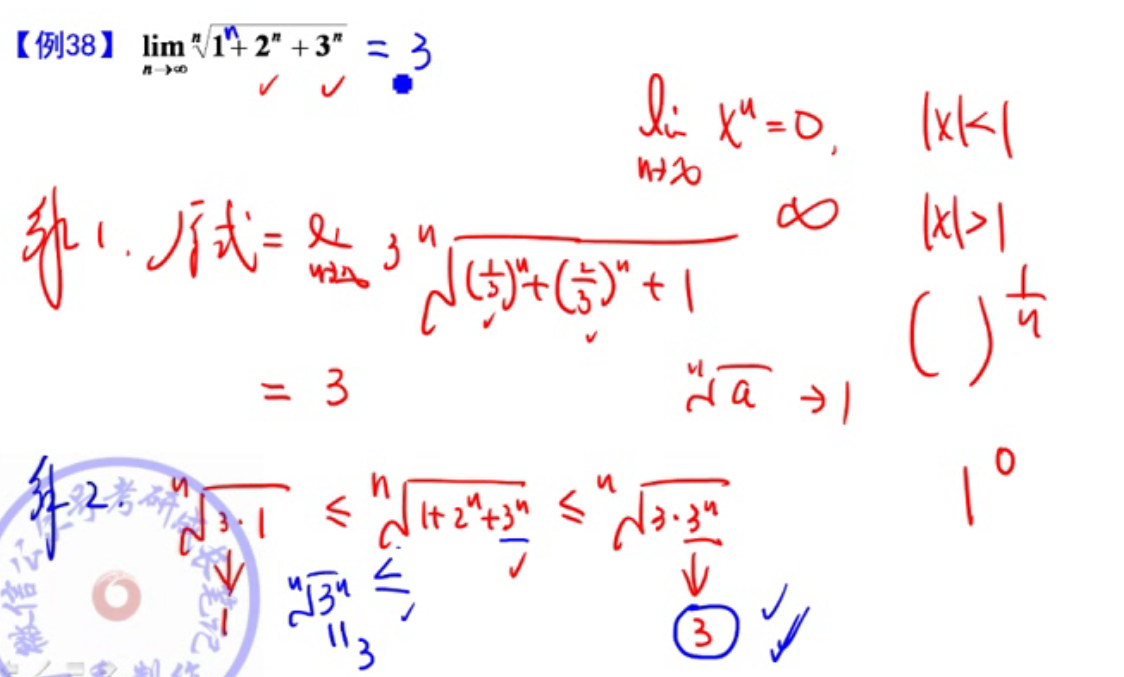 【例38】 lim n→∞ ⁿ√(1ⁿ + 2ⁿ + 3ⁿ) = 3
lim n→∞ xⁿ = 0, |x|<1
∞ |x|>1
解1. 原式 = lim n→∞ 3 ⁿ√((1/3)ⁿ + (2/3)ⁿ + 1)
( )^(1/n)
= 3 ⁿ√a → 1
解2. ⁿ√(3·1) ≤ ⁿ√(1+2ⁿ+3ⁿ) ≤ ⁿ√(3·3ⁿ) 1⁰
↓ ⁿ√3ⁿ ≤ ↓
1 = 3 3